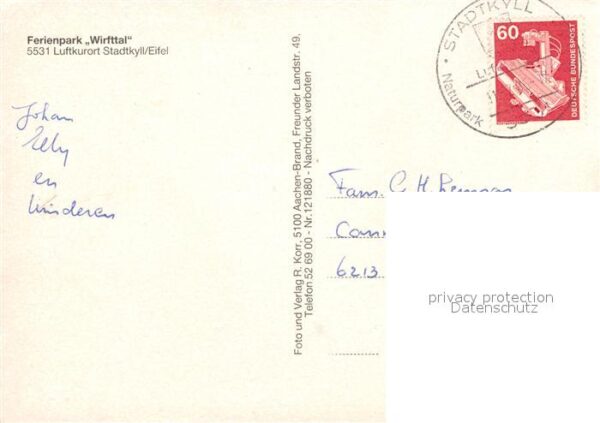 Ferienpark „Wirfttal"
5531 Luftkurort Stadtkyll/Eifel
Johan
Elly
en
kinderen
Foto und Verlag R. Korr, 5100 Aachen-Brand, Freunder Landstr. 49,
Telefon 52 69 00 - Nr. 121880 - Nachdruck verboten
STADTKYLL
Naturpark
60
DEUTSCHE BUNDESPOST
Fam. G. H.
6213
privacy protection
Datenschutz